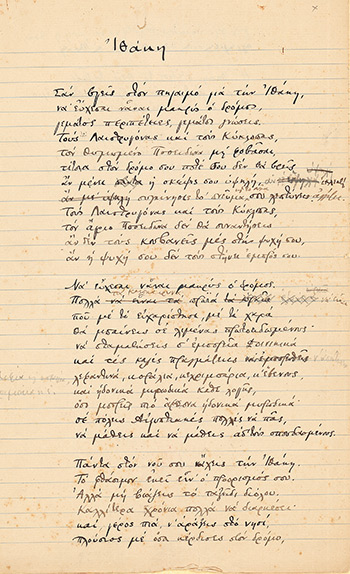 Ἰθάκη
Σὰν βγεῖς στὸν πηγαιμὸ γιὰ τὴν Ἰθάκη,
νὰ εὔχεσαι νᾶναι μακρὺς ὁ δρόμος,
γεμάτος περιπέτειες, γεμάτος γνώσεις.
Τοὺς Λαιστρυγόνας καὶ τοὺς Κύκλωπας,
τὸν θυμωμένο Ποσειδῶνα μὴ φοβᾶσαι,
τέτοια στὸν δρόμο σου ποτέ σου δὲν θὰ βρεῖς
ἂν μέν' ἡ σκέψις σου ὑψηλή, ἂν ἐκλεκτὴ
συγκίνησις τὸ πνεῦμα
Τοὺς Λαιστρυγόνας καὶ τοὺς Κύκλωπας,
τὸν ἄγριο Ποσειδῶνα δὲν θὰ συναντήσεις
ἂν δὲν τοὺς κουβανεῖς μὲς στὴν ψυχή σου,
ἂν ἡ ψυχή σου δὲν τοὺς στήνει ἐμπρός σου.
Νὰ εὔχεσαι νᾶναι μακρὺς ὁ δρόμος.
Πολλὰ
ποῦ μὲ τί εὐχαρίστησι, μὲ τί χαρὰ
θὰ μπαίνεις σὲ λιμένας πρωτοειδωμένους·
νὰ σταματήσεις σ' ἐμπορεῖα Φοινικικὰ
καὶ τὲς καλὲς πραγμάτειες
σεντέφια, κοράλλια, κεχριμπάρια, κ' ἔβενους,
καὶ ἡδονικὰ μυρωδικὰ κάθε λογῆς,
ὅσο μπορεῖς πιὸ ἄφθονα ἡδονικὰ μυρωδικά·
σὲ πόλεις Αἰγυπτιακὲς πολλὲς νὰ πᾶς,
νὰ μάθεις καὶ νὰ μάθεις ἀπ' τοὺς σπουδασμένους.
Πάντα στὸν νοῦ σου νᾶχεις τὴν Ἰθάκη.
Τὸ φθάσιμον ἐκεῖ εἶν' ὁ προορισμός σου.
Ἀλλὰ μὴ βιάζεις τὸ ταξεῖδι διόλου.
Καλλίτερα χρόνια πολλὰ νὰ διαρκέσει·
καὶ γέρος πιὰ ν' ἀράξεις στὸ νησί,
πλούσιος μὲ ὅσα κέρδισες στὸν δρόμο,